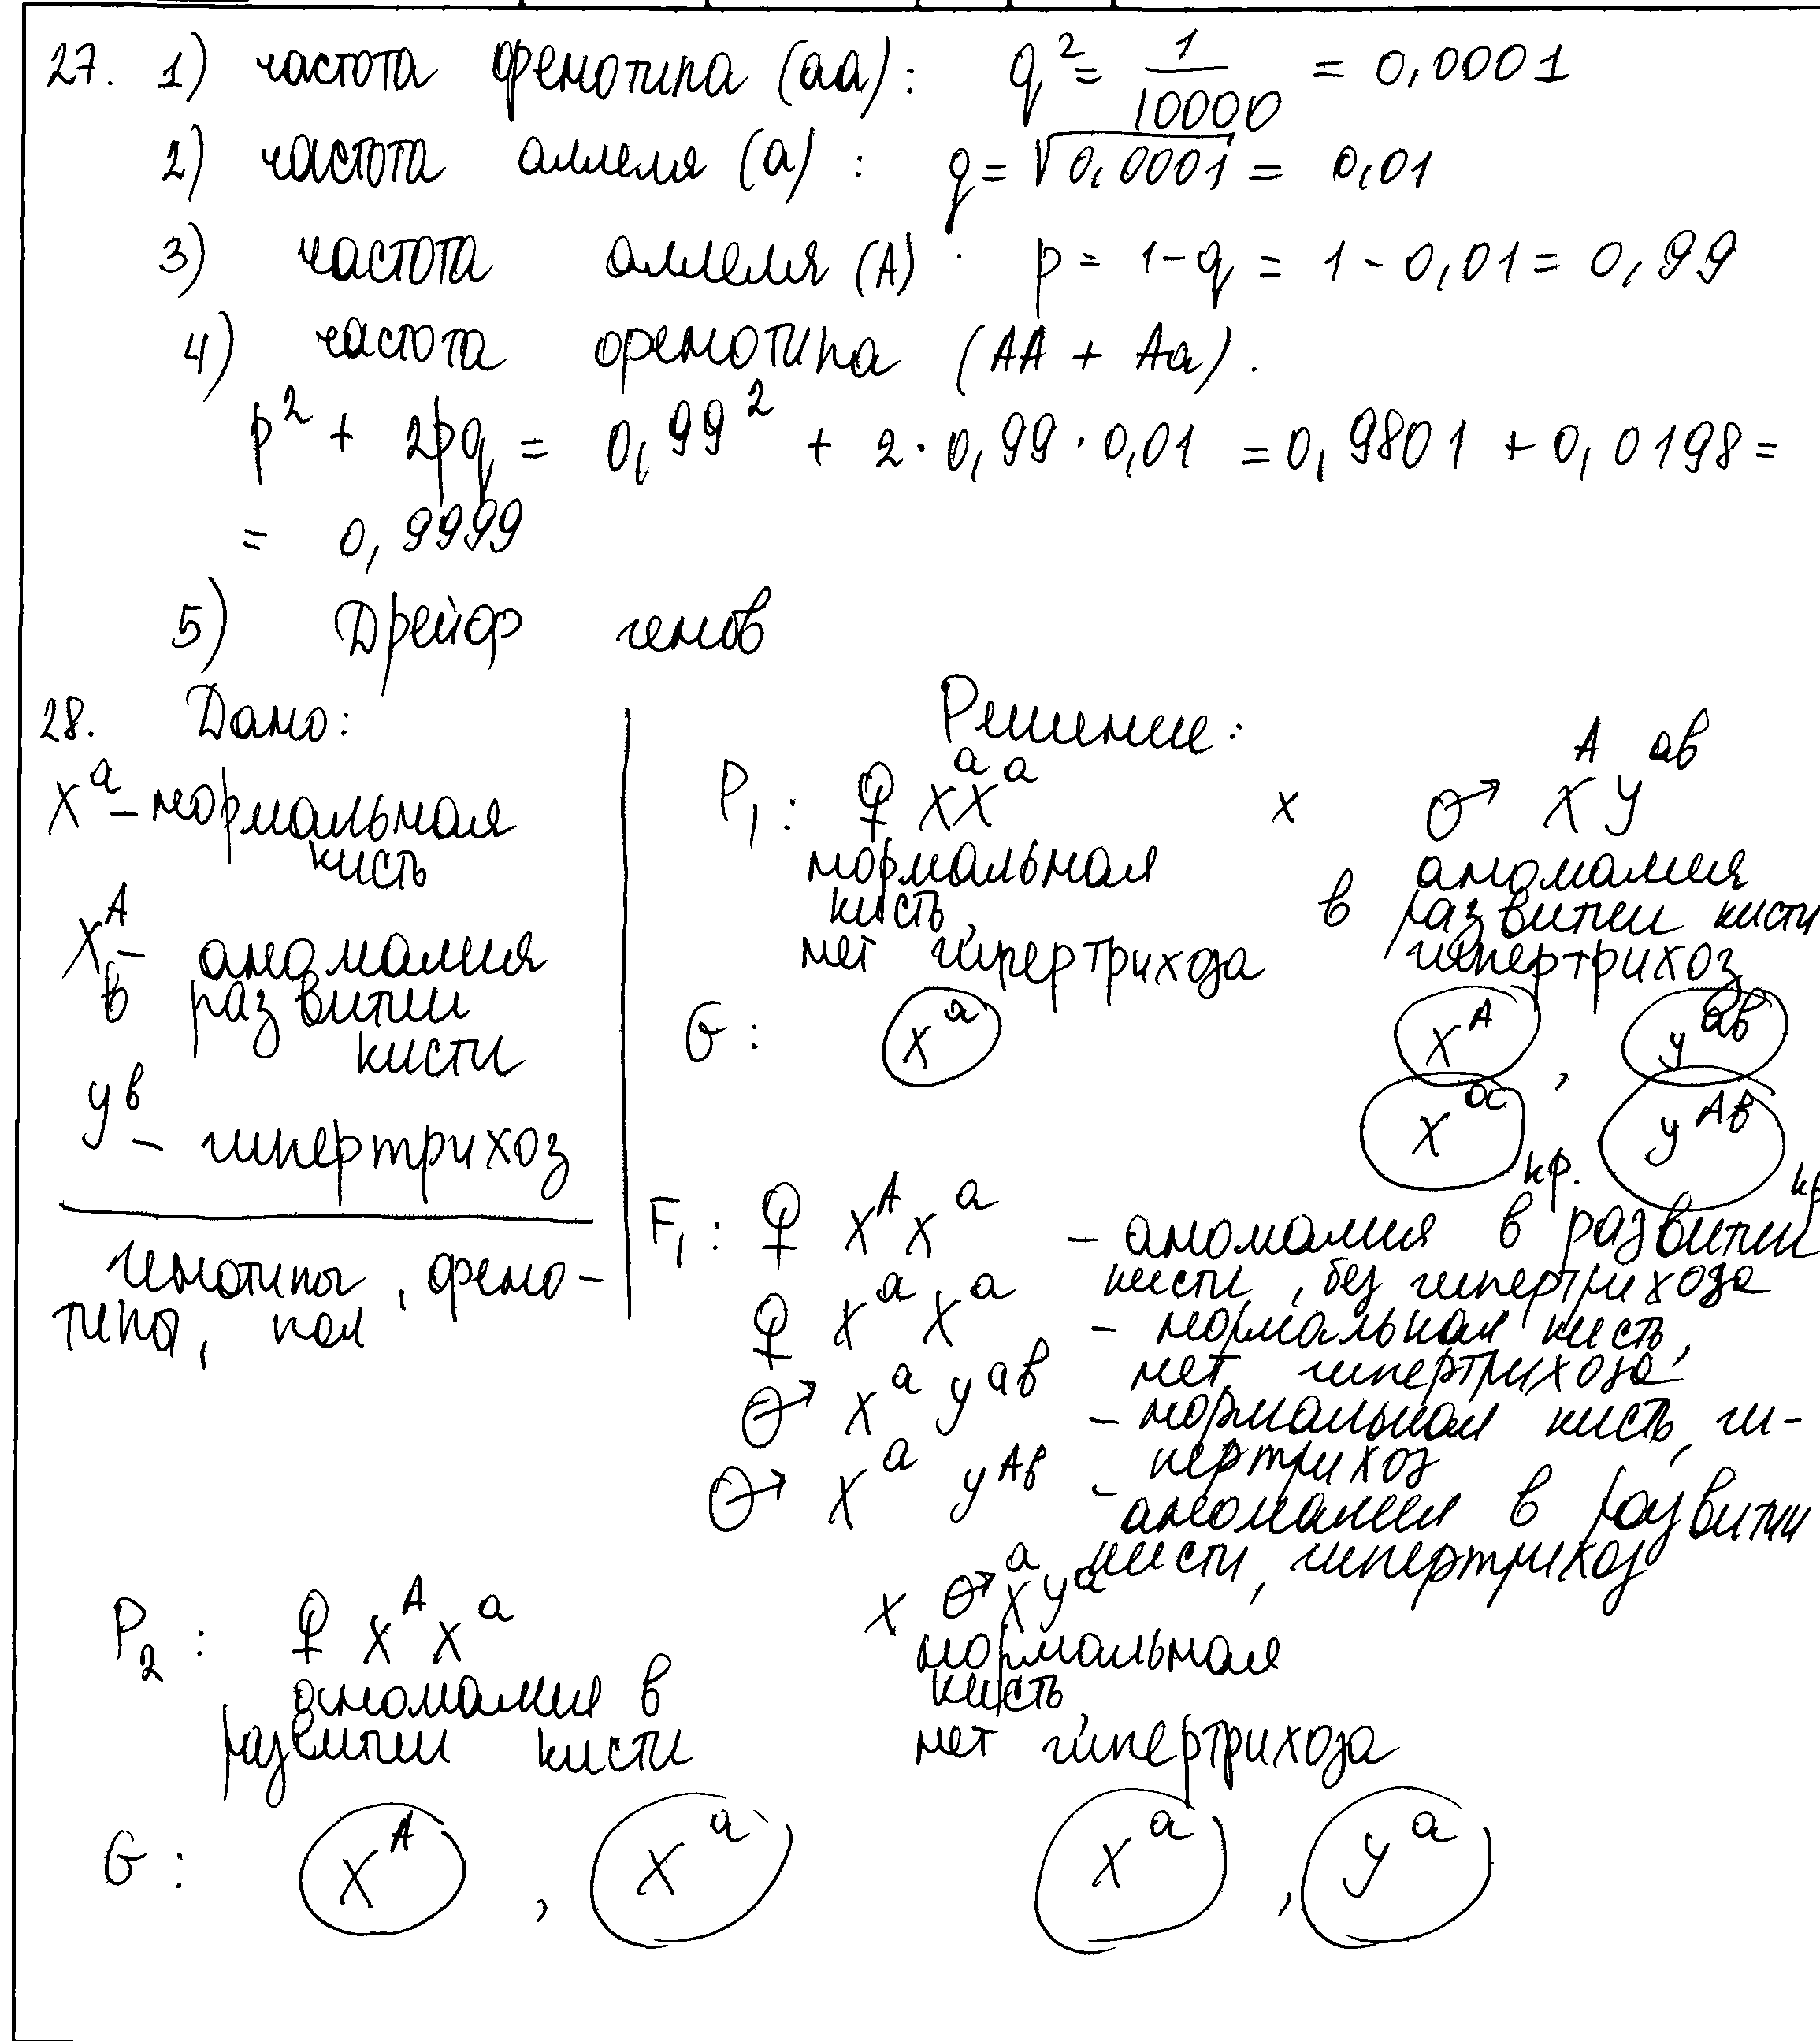 27. 1) частота фенотипа (aa): q² = 1/10000 = 0,0001
2) частота аллеля (a): q = √0,0001 = 0,01
3) частота аллеля (A) . p = 1-q = 1 - 0,01 = 0,99
4) частота фенотипа (AA + Aa).
p² + 2pq = 0,99² + 2·0,99·0,01 = 0,9801 + 0,0198 =
= 0,9999
5) Дрейф генов
28. Дано:
Xᵃ – нормальная
кисть
Xᴬ – аномалия
в развитии
кисти
yᵇ – гипертрихоз
генотипы, фено-
типы, пол
Решение:
P₁: ♀ XᵃXᵃ x ♂ XᴬYᵃᵇ
нормальная кисть, нет гипертрихоза
аномалия в развитии кисти гипертрихоз
G: Xᵃ Xᴬ, yᵃᵇ
Xᵃ кр. yᴬᵇ кр
F₁: ♀ XᴬXᵃ – аномалия в развитии
кисти, без гипертрихоза
♀ XᵃXᵃ – нормальная кисть,
нет гипертрихоза
♂ Xᵃyᵃᵇ – нормальная кисть, ги-
пертрихоз
♂ Xᵃyᴬᵇ – аномалия в развитии
кисти, гипертрихоз
P₂: ♀ XᴬXᵃ x ♂ Xᵃyᵃ
аномалия в
развитии кисти
нормальная
кисть,
нет гипертрихоза
G: Xᴬ, Xᵃ Xᵃ, yᵃ